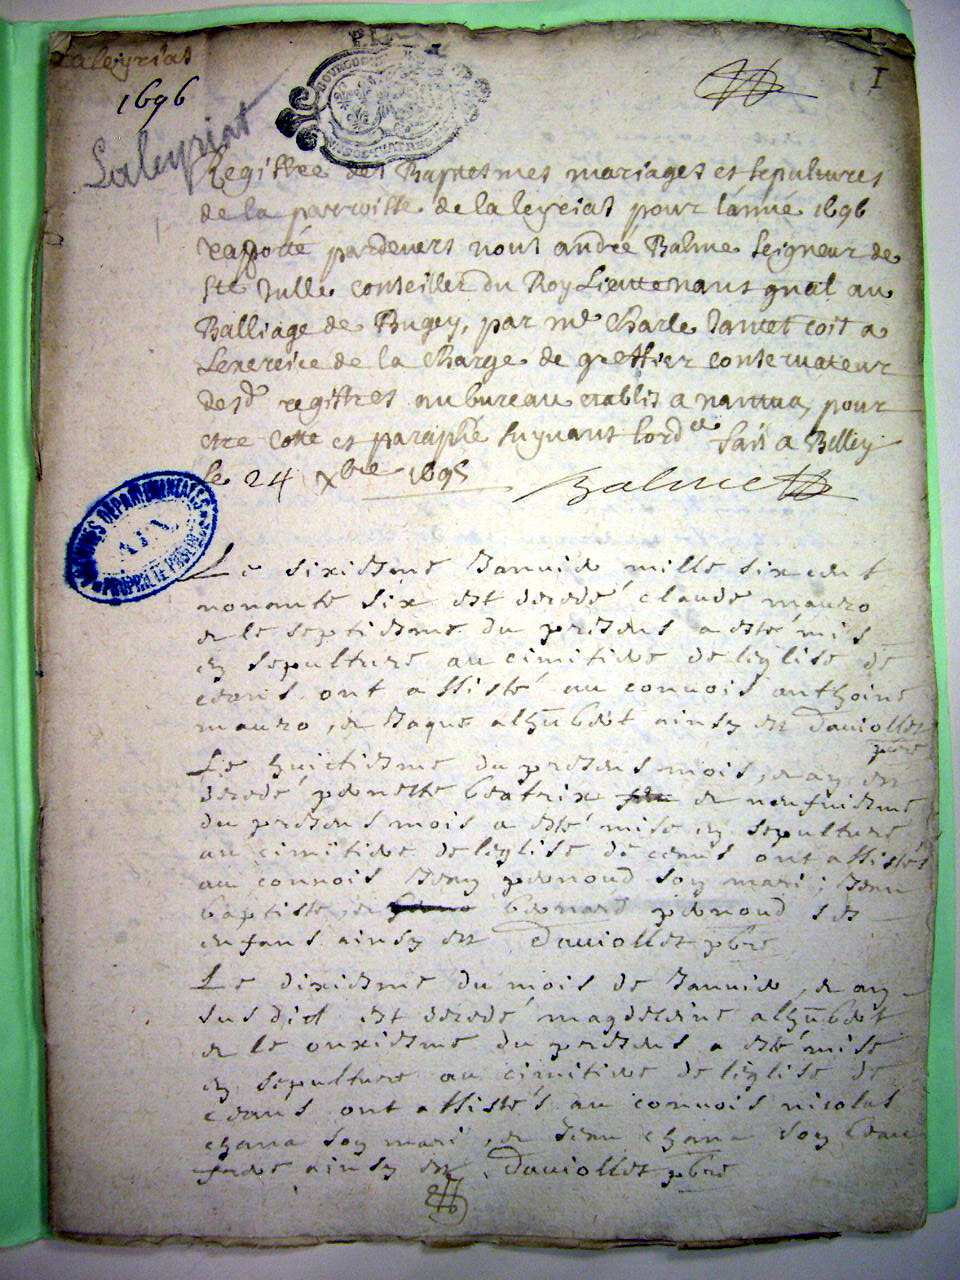 Laleyriat
1696
I
Laleyriat
Registre des Baptesmes mariages et sepultures
de la parroisse de laleyriat pour l'année 1696
rapporté pardevers nous andré Balme Seigneur de
Ste Julle conseiller du Roy Lieutenant gnal au
Balliage de Bugey, par me Charle Jantet coit a
Lexercice de la charge de greffier conservateur
desd registres au bureau etablis a nantua, pour
etre cotté et paraphé suyvant lord ce fait a Belley
le 24 xbre 1695 Balme
ARCHIVES DEPARTEMENTALES
AIN
PROPRIETE PUBLIQUE
Le sixiesme Janvier mille six cent
nonante six est decedé claude mauro
& le septiesme du presens a esté mis
en sepulture au cimitiere de leglise de
ceans ont assisté au convois anthoine
mauro, & Jaque alhubert ainsy est Daviollet
pbre
Le huictiesme du presens mois, & an est
decedé pernette beatrix & neufuiesme
du presens mois a esté mise en sepulture
au cimitiere de leglise de ceans ont assistés
au convois Jean pernoud son mari, Jean
baptiste, & bernard pernoud ses
enfans ainsy est Daviollet pbre
Le dixiesme du mois de Janvier, & an
susdict est decedé magdeleine alhubert
& le onxiesme du presens a esté mise
en sepulture au cimitiere de leglise de
ceans ont assistés au convois nicolas
chana son mari, & Jean chana son beau
frere ainsy est, Daviollet pbre